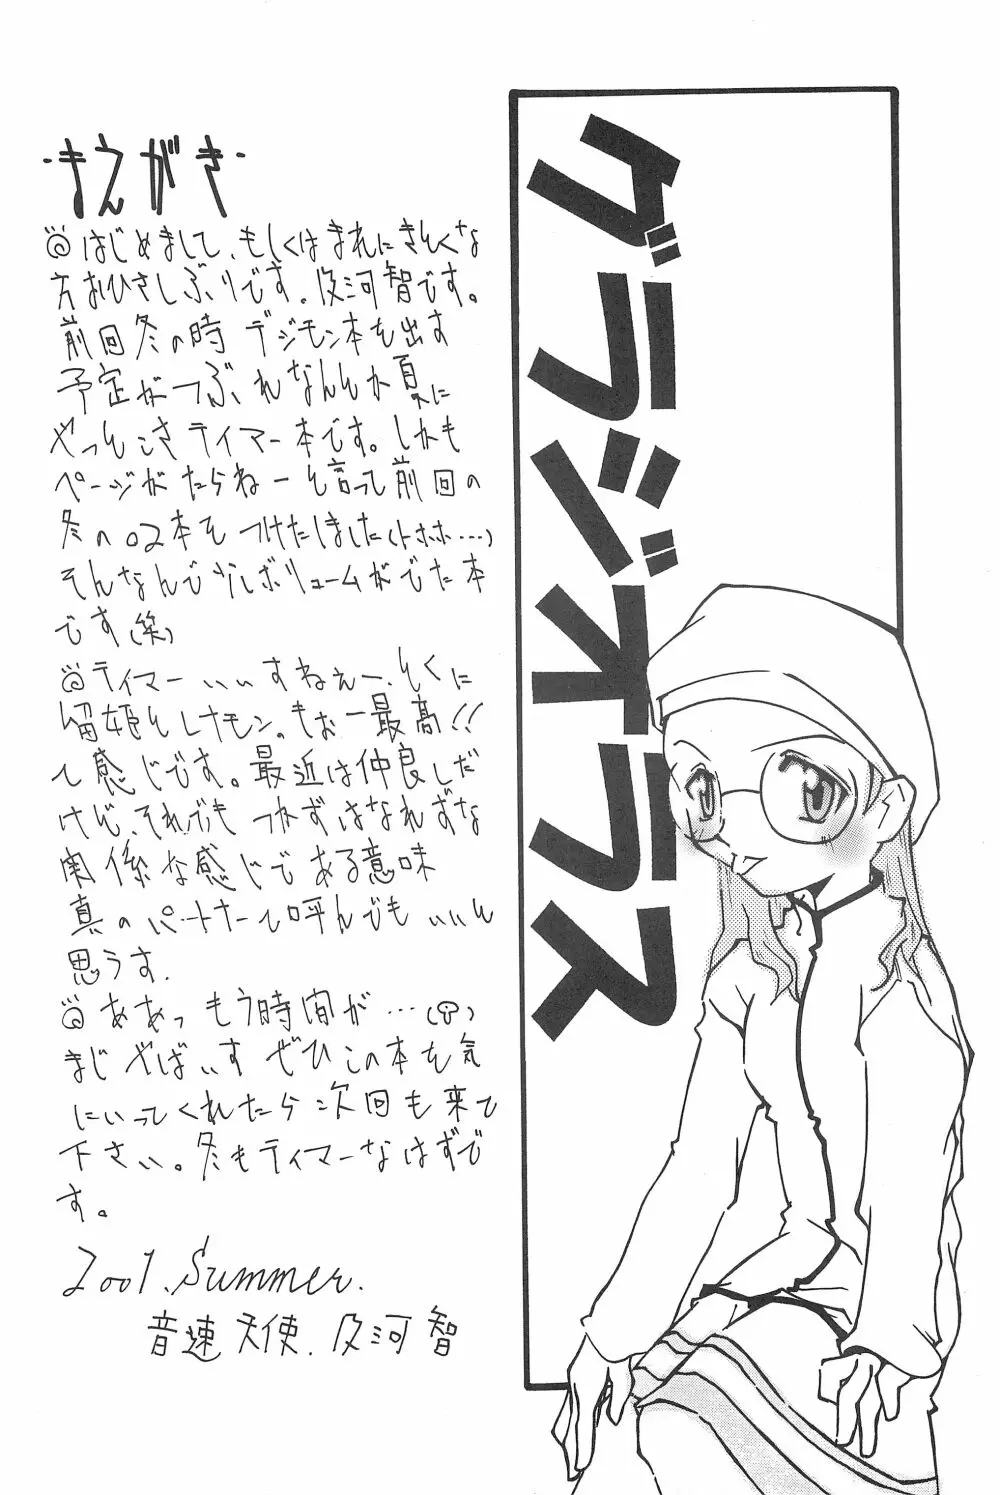 ・まえがき・
◎はじめまして、もしくはまれにきとくな
方おひさしぶりです。及河智です。
前回冬の時デジモン本を出す
予定がつぶれなんとか夏に
やっとこさテイマー本です。しかも
ページがたらねーと言って前回の
冬の02本をつけたしました(トホホ…)
そんなんで少しボリュームがでた本
です(笑)
◎テイマーいいすねぇー、とくに
留姫とレナモン。もぉー最高!!
て感じです。最近は仲良しだ
けど、それでもつかずはなれずな
関係な感じである意味
真のパートナーて呼んでもいいと
思うす.
◎ああっもう時間が…(
まじやばいす ぜひこの本を気
にいってくれたら次回も来て
下さい。冬もテイマーなはずで
す。
2001.Summer.
音速天使.及河智
グラジオラス